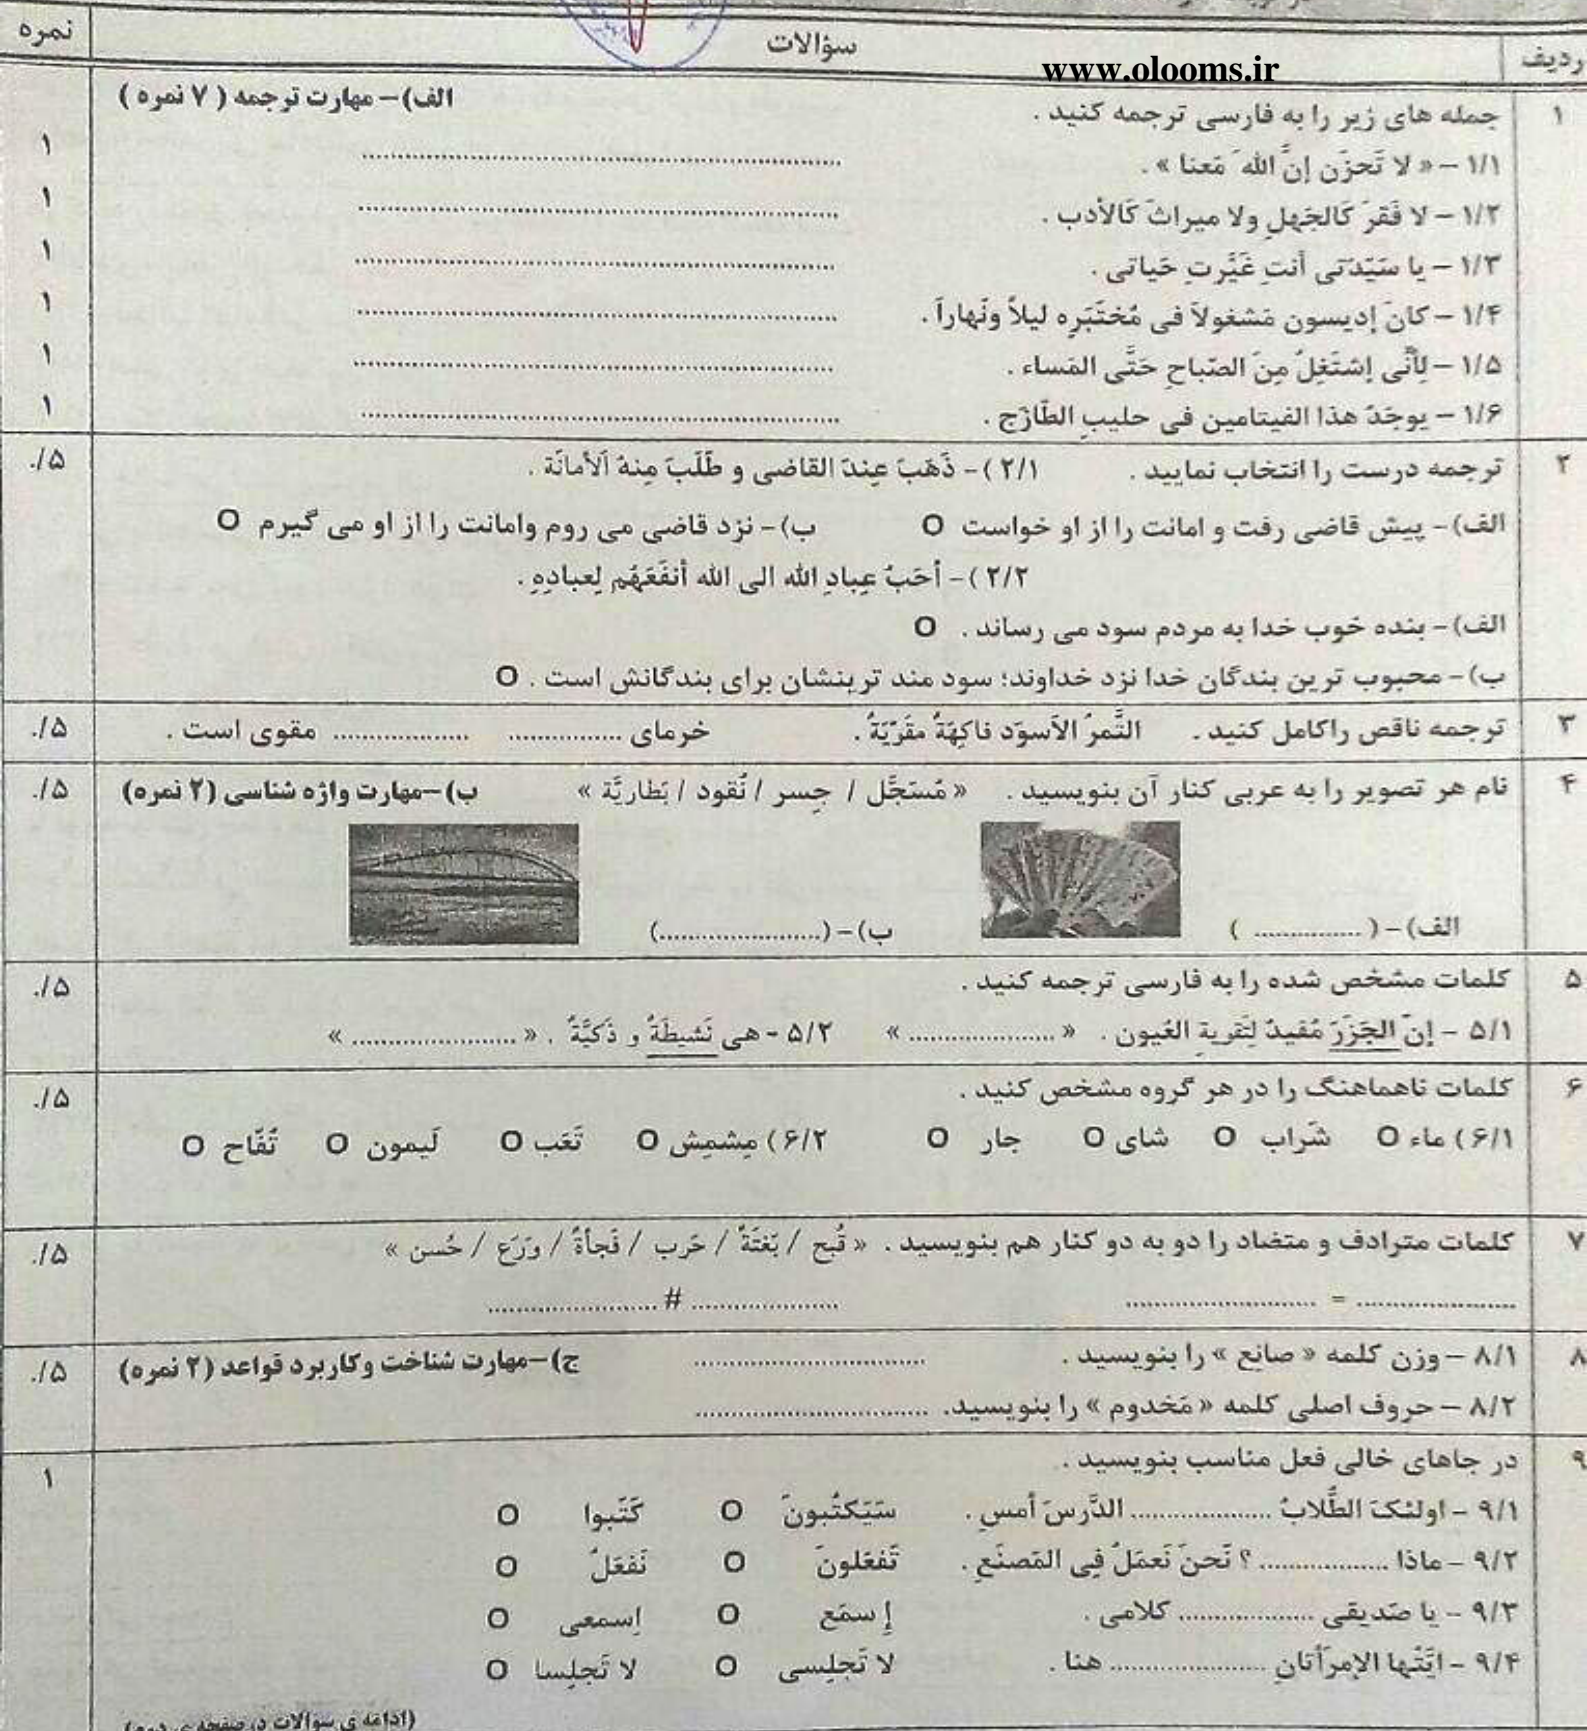 ردیف سؤالات نمره
www.olooms.ir
۱ جمله های زیر را به فارسی ترجمه کنید . الف)– مهارت ترجمه ( ۷ نمره )
۱/۱ – « لا تَحزَن إنَّ اللهَ مَعنا » . .................... ۱
۱/۲ – لا فَقرَ کَالجَهلِ ولا میراثَ کَالأدب . .................... ۱
۱/۳ – یا سَیِّدَتی أنتِ غَیَّرتِ حَیاتی . .................... ۱
۱/۴ – کانَ إدیسون مَشغولاً فی مُختَبَرِه لیلاً ونَهاراً . .................... ۱
۱/۵ – لِأنّی اِشتَغِلُ مِنَ الصّباحِ حَتَّی المَساء . .................... ۱
۱/۶ – یوجَدُ هذا الفیتامین فی حلیبِ الطّازَج . .................... ۱
۲ ترجمه درست را انتخاب نمایید . ۲/۱ )– ذَهَبَ عِندَ القاضی و طَلَبَ مِنهُ اَلأمانَة . ./۵
الف)– پیش قاضی رفت و امانت را از او خواست O ب)– نزد قاضی می روم وامانت را از او می گیرم O
۲/۲ )– أحَبُ عِبادِ الله الی الله أنفَعَهُم لِعبادِهِ .
الف)– بنده خوب خدا به مردم سود می رساند . O
ب)– محبوب ترین بندگان خدا نزد خداوند؛ سود مند ترینشان برای بندگانش است . O
۳ ترجمه ناقص راکامل کنید . التَّمرُ الاَسوَد فاکِهَةٌ مقَرّیَةٌ . خرمای ................ ................ مقوی است . ./۵
۴ نام هر تصویر را به عربی کنار آن بنویسید . « مُسَجَّل / جِسر / نُقود / بَطاریَّة » ب)–مهارت واژه شناسی (۲ نمره) ./۵
الف)– ( ................ ) ب)– (.......................)
۵ کلمات مشخص شده را به فارسی ترجمه کنید . ./۵
۵/۱ – إنّ الجَزَرَ مُفیدٌ لِتَقریةِ العُیون . « ..................... » ۵/۲ - هی نَشیطَةٌ و ذَکیَّةٌ . « ....................... »
۶ کلمات ناهماهنگ را در هر گروه مشخص کنید . ./۵
۶/۱ ) ماء O شَراب O شای O جار O ۶/۲ ) مِشمِش O تَعَب O لَیمون O تُفّاح O
۷ کلمات مترادف و متضاد را دو به دو کنار هم بنویسید . « قُبح / بَغتَةً / حَرب / فَجأةً / وَرَع / حُسن » ./۵
...................... = ......................... ..................... # .......................
۸ ۸/۱ – وزن کلمه « صانِع » را بنویسید . ............................... ج)–مهارت شناخت وکاربرد قواعد (۲ نمره) ./۵
۸/۲ – حروف اصلی کلمه « مَخدوم » را بنویسید. ...............................
۹ در جاهای خالی فعل مناسب بنویسید . ۱
۹/۱ – اولئکَ الطُّلابُ .................... الدَّرسَ أمسِ . سَیَکتُبونَ O کَتَبوا O
۹/۲ – ماذا .................. ؟ نَحنَ نَعمَلُ فِی المَصنَعِ . تَفعَلونَ O نَفعَلُ O
۹/۳ – یا صَدیقی ................... کلامی . إسمَع O اِسمعی O
۹/۴ – ایَّتُها الإمرَأتانِ ...................... هنا . لا تَجلِسی O لا تَجلِسا O
(ادامه ی سوالات درصفحه ی دوم)